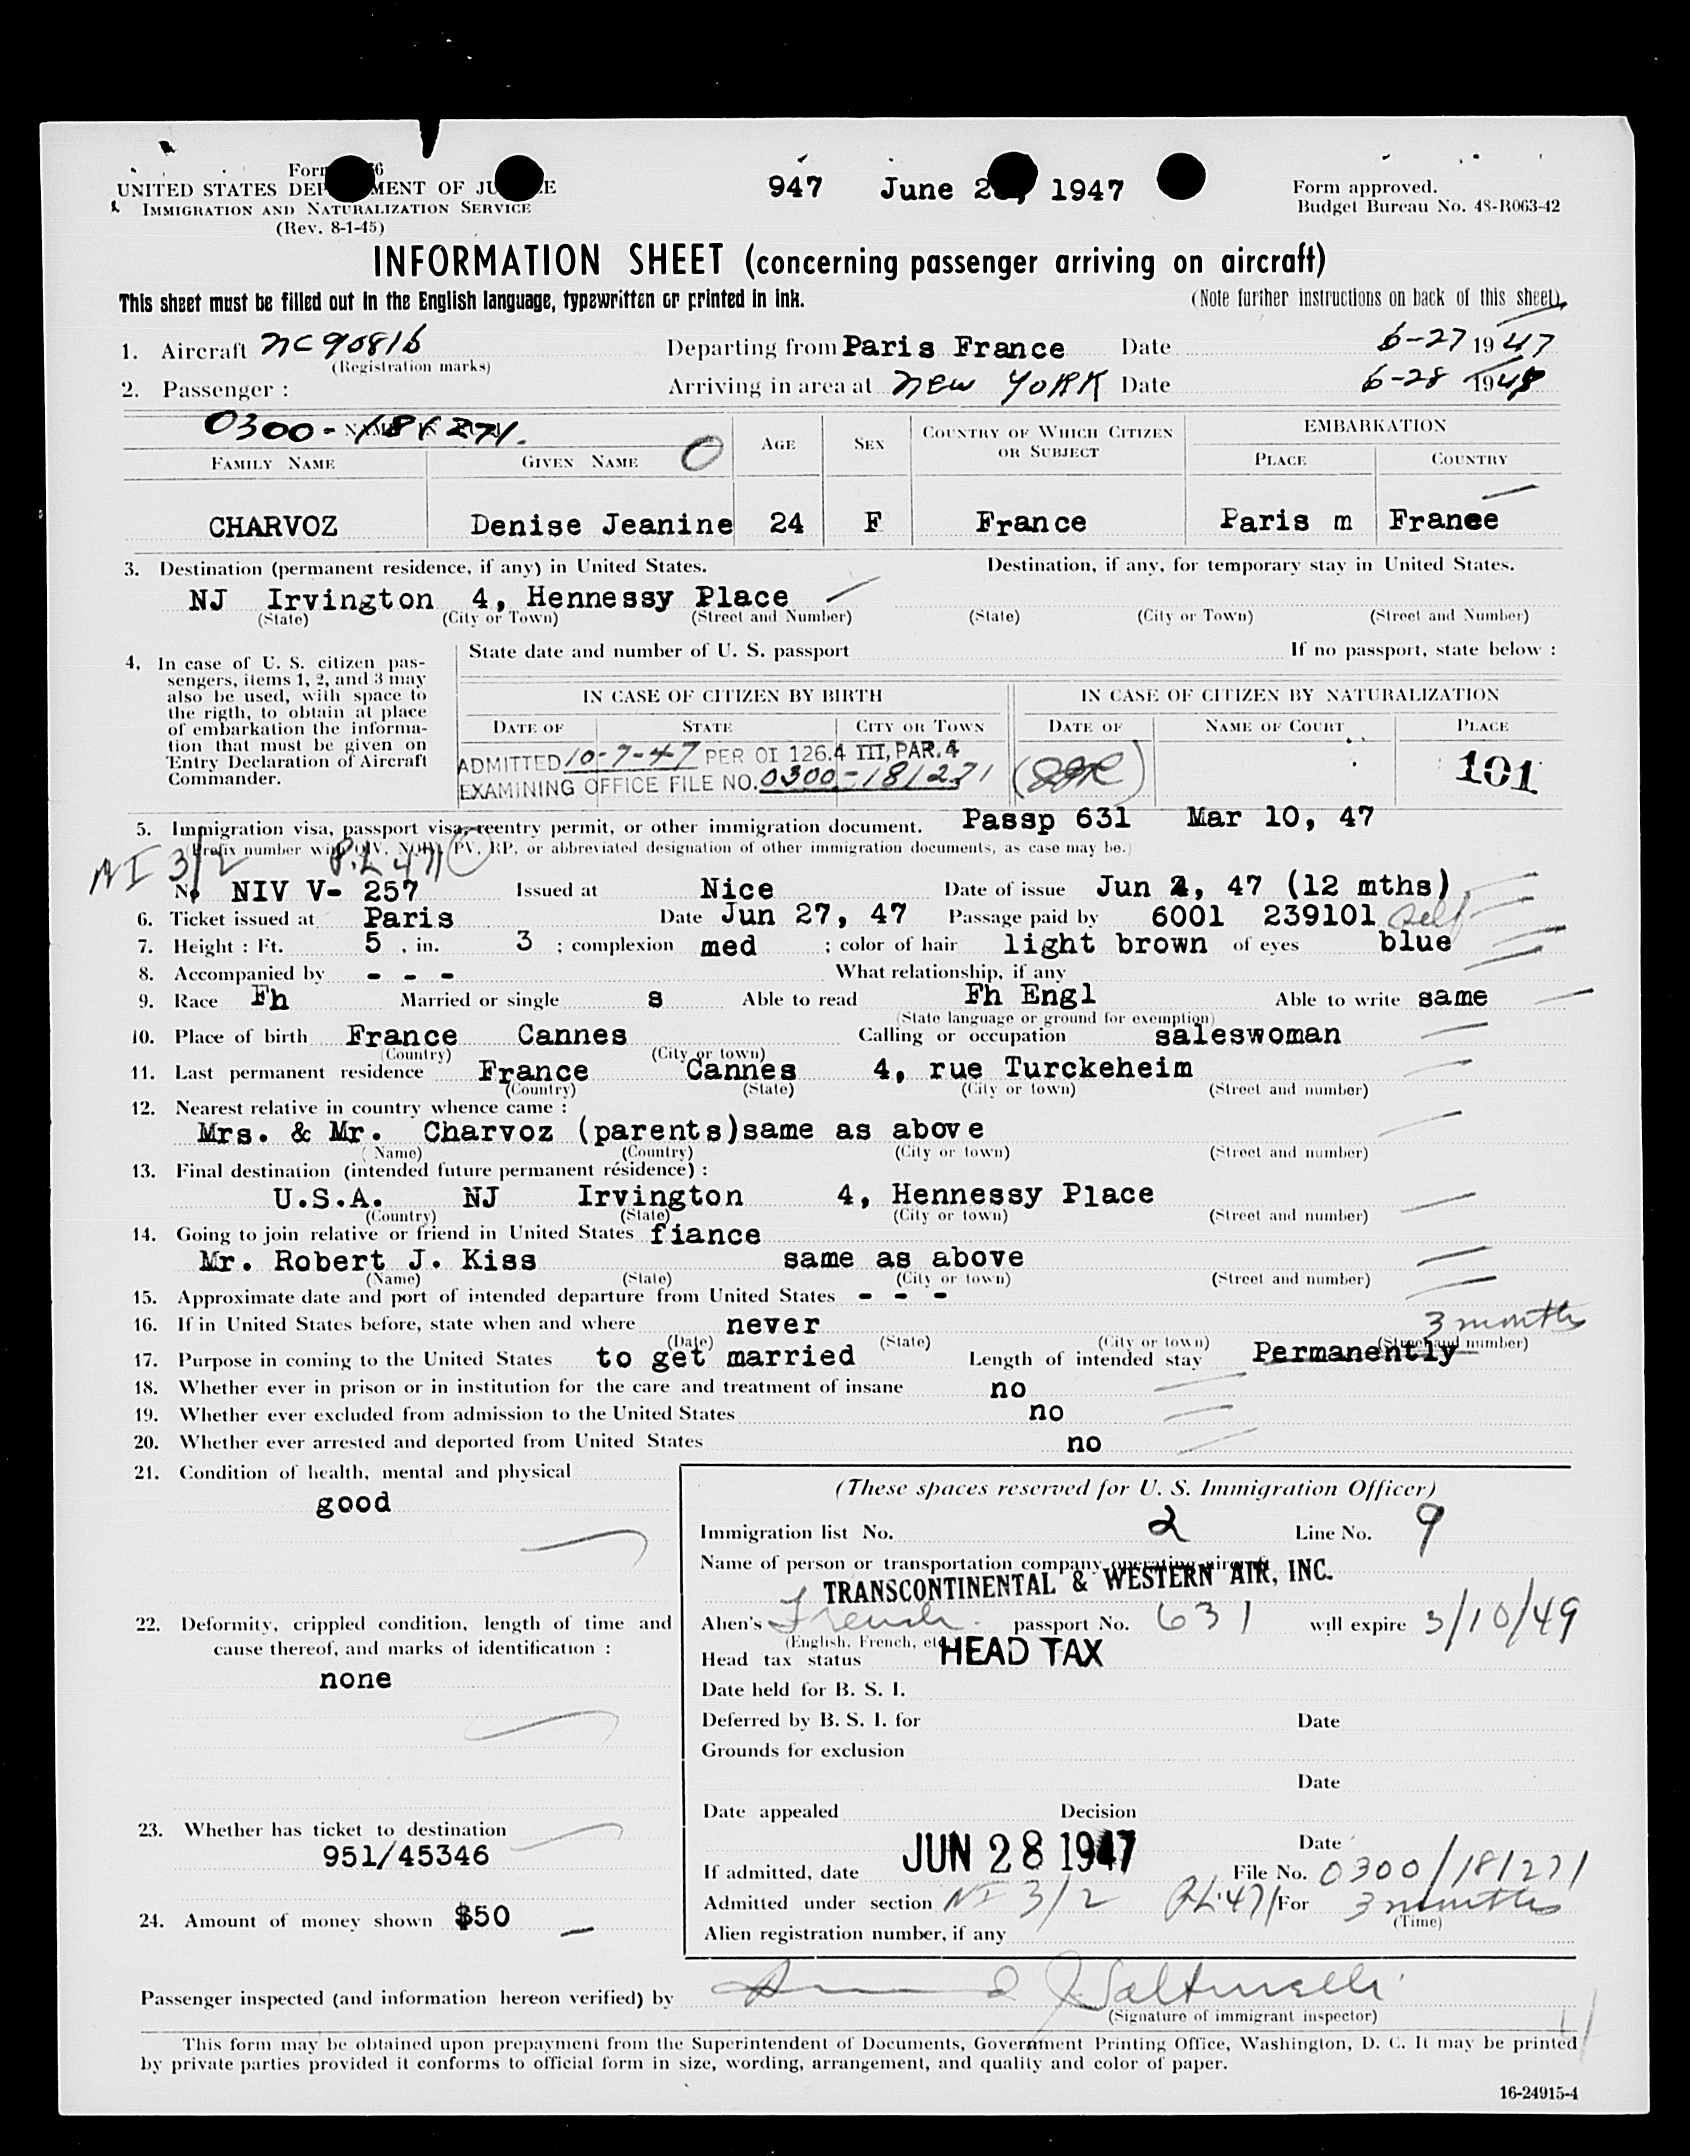 Form
UNITED STATES DEPARTMENT OF JUSTICE
IMMIGRATION AND NATURALIZATION SERVICE
(Rev. 8-1-45)
947 June 1947
Form approved.
Budget Bureau No. 43-R063-42
INFORMATION SHEET (concerning passenger arriving on aircraft)
This sheet must be filled out in the English language, typewritten or printed in ink.
(Note further instructions on back of this sheet).
1. Aircraft NC90816 Departing from Paris France Date 6-27 1947
(Registration marks)
2. Passenger : Arriving in area at NEW YORK Date 6-28 1947
0300-181271.
FAMILY NAME GIVEN NAME O AGE SEX COUNTRY OF WHICH CITIZEN OR SUBJECT EMBARKATION PLACE COUNTRY
CHARVOZ Denise Jeanine 24 F France Paris m France
3. Destination (permanent residence, if any) in United States. Destination, if any, for temporary stay in United States.
NJ Irvington 4, Hennessy Place
(State) (City or Town) (Street and Number) (State) (City or Town) (Street and Number)
4. In case of U. S. citizen pas-
sengers, items 1, 2, and 3 may
also be used, with space to
the rigth, to obtain at place
of embarkation the informa-
tion that must be given on
Entry Declaration of Aircraft
Commander.
State date and number of U. S. passport If no passport, state below :
IN CASE OF CITIZEN BY BIRTH IN CASE OF CITIZEN BY NATURALIZATION
DATE OF STATE CITY OR TOWN DATE OF NAME OF COURT PLACE
ADMITTED 10-7-47 PER OI 126.4 III, PAR. 4
EXAMINING OFFICE FILE NO. 0300-181271
101
5. Immigration visa, passport visa, reentry permit, or other immigration document. Passp 631 Mar 10, 47
(Prefix number with QIV, NQIV, PV, RP, or abbreviated designation of other immigration documents, as case may be.)
NI 3/2 P.L 471
No NIV V- 257 Issued at Nice Date of issue Jun 2, 47 (12 mths)
6. Ticket issued at Paris Date Jun 27, 47 Passage paid by 6001 239101 Self
7. Height : Ft. 5 , in. 3 ; complexion med ; color of hair light brown of eyes blue
8. Accompanied by - - - What relationship, if any
9. Race Fh Married or single s Able to read Fh Engl Able to write same
(State language or ground for exemption)
10. Place of birth France Cannes Calling or occupation saleswoman
(Country) (City or town)
11. Last permanent residence France Cannes 4, rue Turckeheim
(Country) (State) (City or town) (Street and number)
12. Nearest relative in country whence came :
Mrs. & Mr. Charvoz (parents)same as above
(Name) (Country) (City or town) (Street and number)
13. Final destination (intended future permanent résidence) :
U.S.A. NJ Irvington 4, Hennessy Place
(Country) (State) (City or town) (Street and number)
14. Going to join relative or friend in United States fiance
Mr. Robert J. Kiss same as above
(Name) (State) (City or town) (Street and number)
15. Approximate date and port of intended departure from United States - - -
16. If in United States before, state when and where never 3 months
(Date) (State) (City or town) (Street and number)
17. Purpose in coming to the United States to get married Length of intended stay Permanently
18. Whether ever in prison or in institution for the care and treatment of insane no
19. Whether ever excluded from admission to the United States no
20. Whether ever arrested and deported from United States no
21. Condition of health, mental and physical
good
22. Deformity, crippled condition, length of time and
cause thereof, and marks of identification :
none
23. Whether has ticket to destination
951/45346
24. Amount of money shown $50
(These spaces reserved for U. S. Immigration Officer)
Immigration list No. 2 Line No. 9
Name of person or transportation company operating aircraft
TRANSCONTINENTAL & WESTERN AIR, INC.
Alien's French passport No. 631 will expire 3/10/49
(English, French, etc.)
Head tax status HEAD TAX
Date held for B. S. I.
Deferred by B. S. I. for Date
Grounds for exclusion
Date
Date appealed Decision
Date
If admitted, date JUN 28 1947 File No. 0300/181271
Admitted under section NI 3/2 PL 471 For 3 months
(Time)
Alien registration number, if any
Passenger inspected (and information hereon verified) by
(Signature of immigrant inspector)
This form may be obtained upon prepayment from the Superintendent of Documents, Government Printing Office, Washington, D. C. It may be printed
by private parties provided it conforms to official form in size, wording, arrangement, and quality and color of paper.
16-24915-4